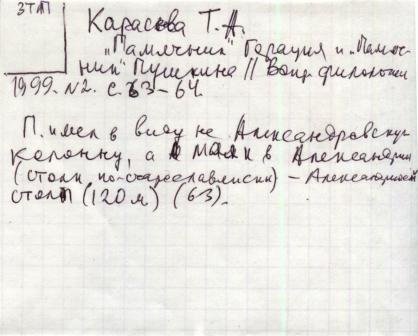 ЗТМ
Карасева Т. А.
"Памятник" Горация и "Памят-
ник" Пушкина // Вопр. филологии
1999. №2. С. 63-64.
П. имел в виду не Александровскую
колонну, а маяк в Александрии
(столп, по-старославянски) – Александрийский
столп (120 м) (63).